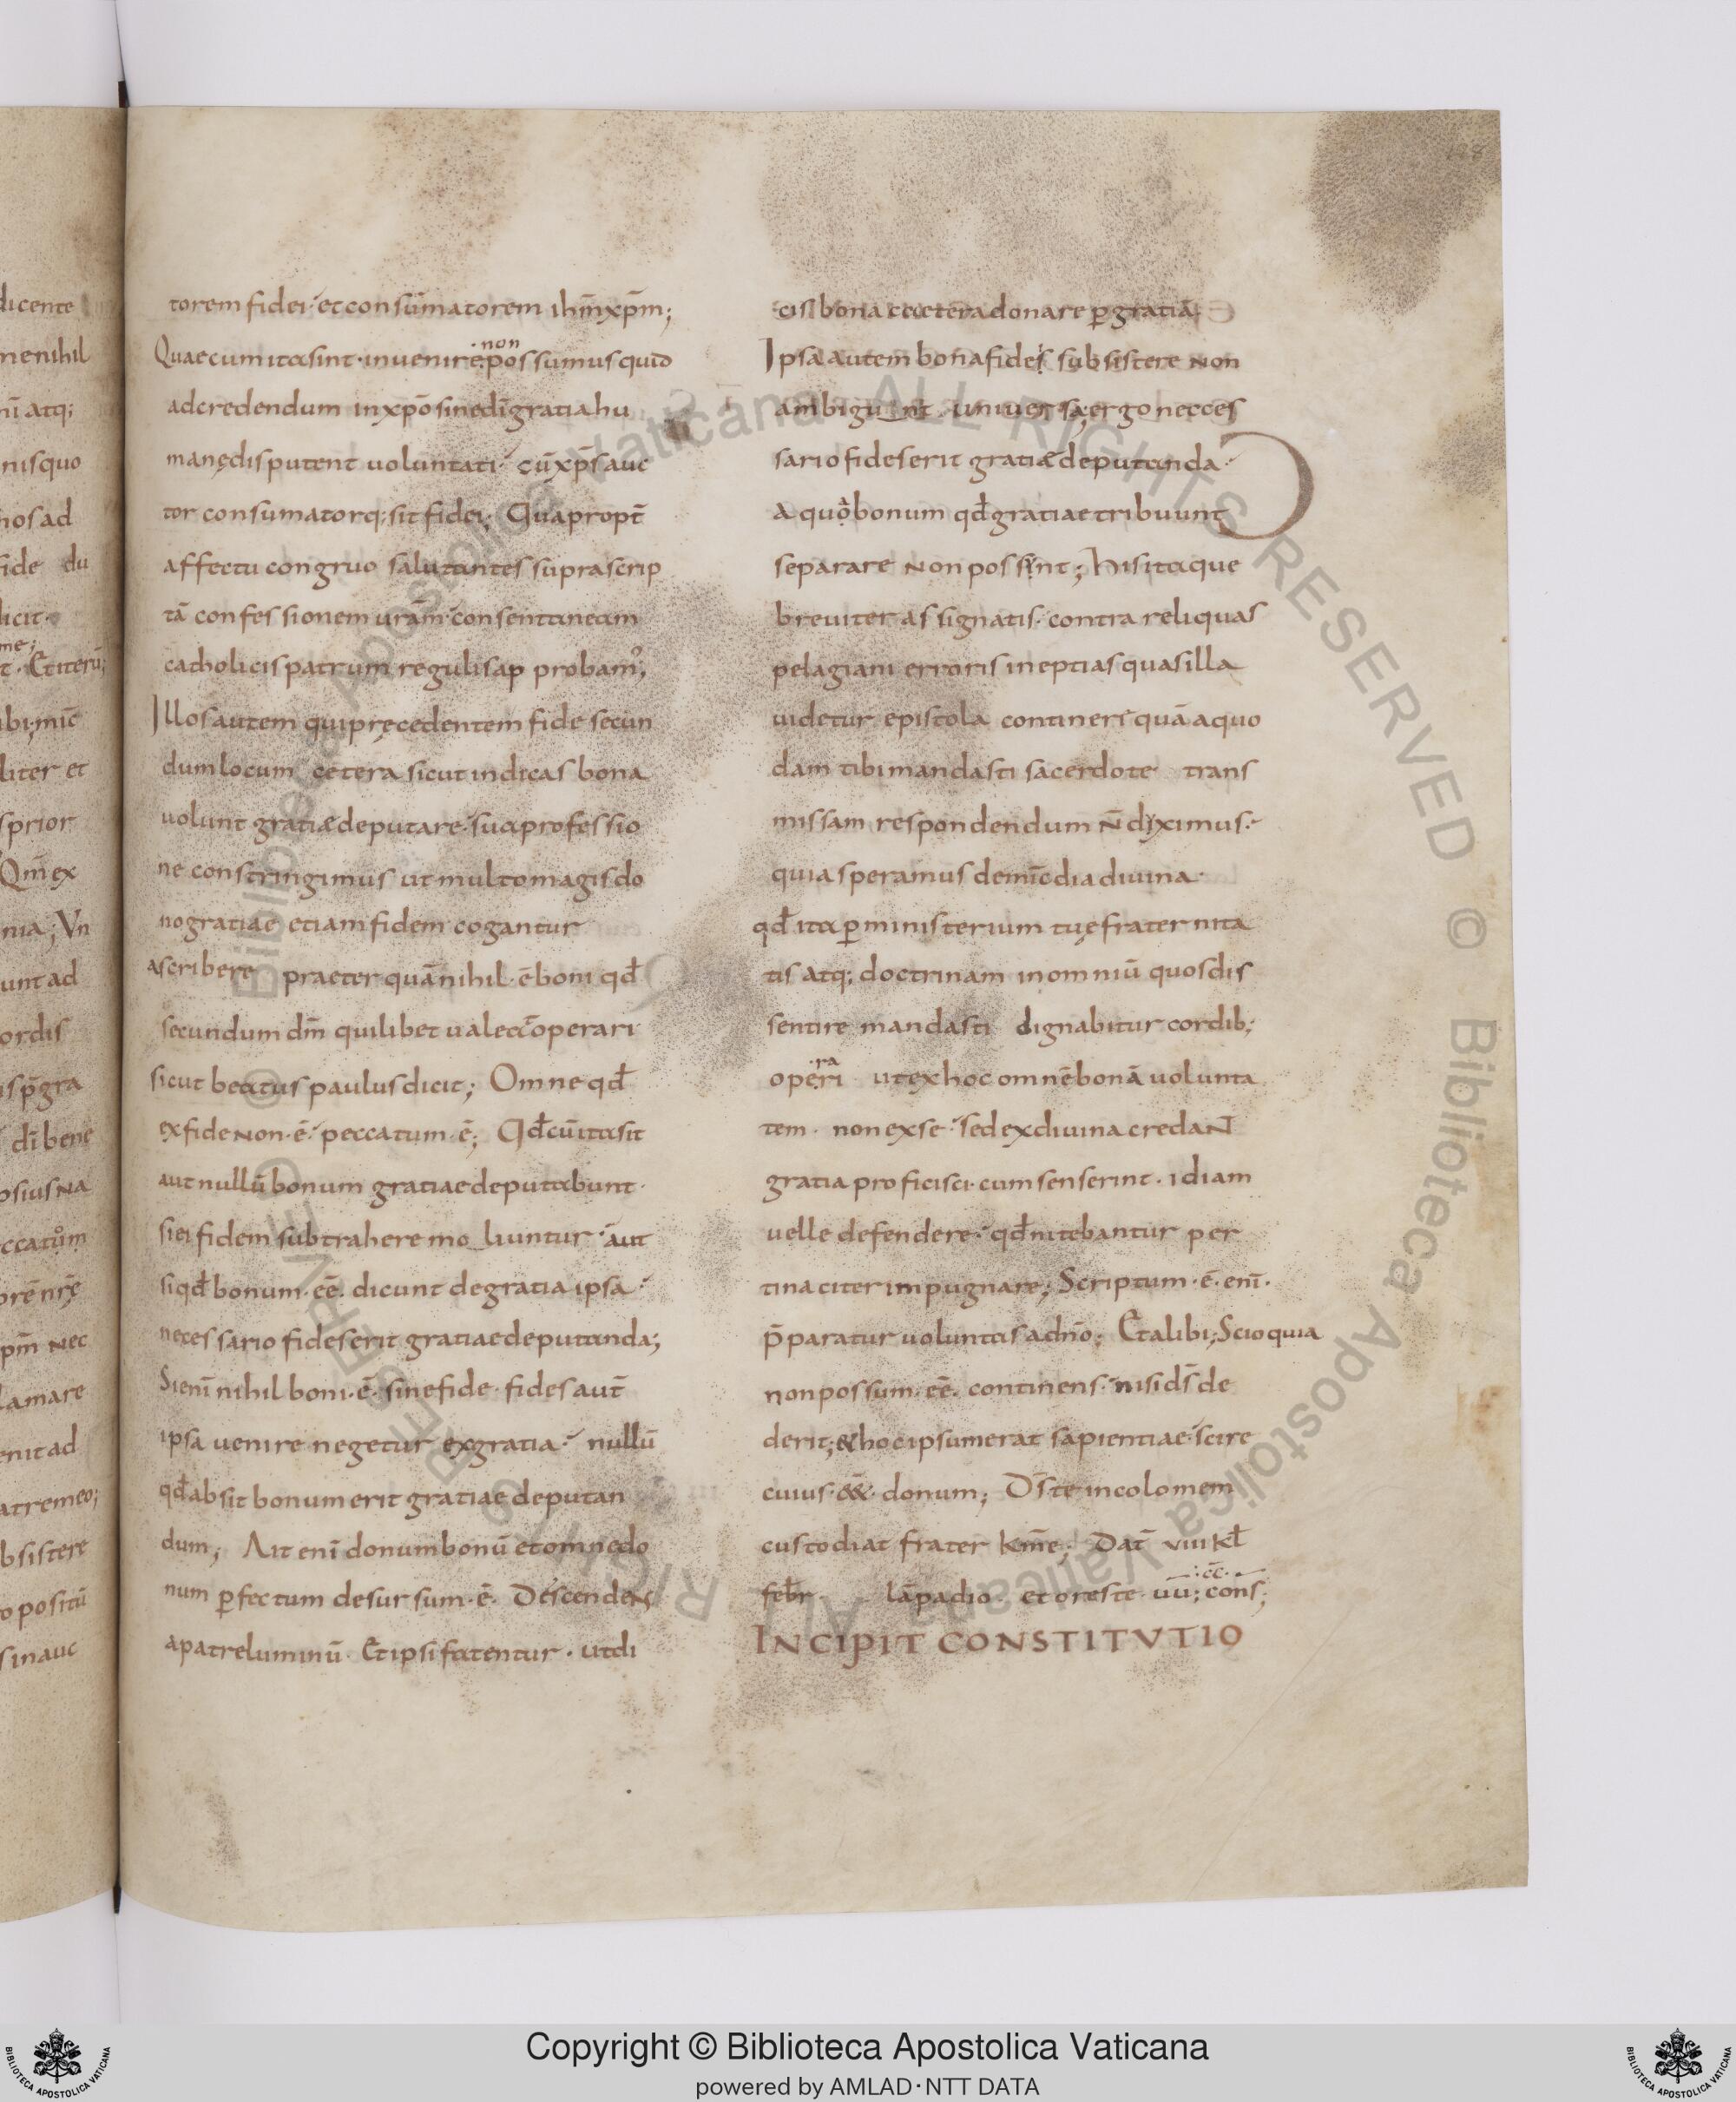 dicente
menihil
ni̅ atq;
nisquo
nos ad
fide du
dicit·
me;
t· Et iteru̅;
ibi; mic̅
liter et
sprior
Qm̅ ex
nia; Vn
unt ad
ordis
is p̅gra
di̅ bene
osius Na
ccatu̅m
ore̅ nr̅ę
pm̅ nec
lamare
enit ad
atremeo;
bsistere
o positu̅
sinauc
torem fidei· et consum̅atorem ihm̅ xpm̅;
Quae cum ita sint· inuenire·non·possumus quid
ad credendum in xpo̅ sine di̅ gratia hu
manę disputent uoluntati· cu̅ xps̅ auc
tor consumatorq; sit fidei; Quapropt̅
affectu congruo salutantes suprascrip
ta̅ confessionem ura̅m· consentaneam
catholicis patrum regulis ap probam᷒;
Illos autem qui pręcedentem fide secun
dum locum cetera sicut indicas bona
uolunt gratiæ deputare· sua professio
ne constringimus ut multo magis do
no gratiae etiam fidem cogantur
ascribere praeter qua̅ nihil·e̅ boni qd̅
secundum dm̅ quilibet ualeat operari
sicut beatus paulus dicit; Omne qd̅
ex fide non·e̅· peccatum·e̅; Qd̅ cu̅ ita sit
aut nullu̅ bonum gratiae deputabunt·
si ei fidem subtrahere moliuntur· aut
si qd̅ bonum·ee̅· dicunt de gratia ipsa·
necessario fides erit gratiae deputanda;
Si eni̅ nihil boni·e̅· sine fide· fides aut̅
ipsa uenire negetur ex gratia· nullu̅
qd̅ absit bonum erit gratiae deputan
dum; Ait eni̅ donum bonu̅ et omne do
num ꝑfectum desursum·e̅· Descendens
a patre luminu̅· Et ipsi fatentur· ut di
cis bona cætera donare ꝑ gratia̅
Ipsa autem bona fidei subsistere non
ambigunt· uniuersa ergo necces
sario fides erit gratiæ deputanda·
a quo bonum qd̅ gratiae tribuunt
separare non possint; his itaque
breuiter assignatis· contra reliquas
pelagiani erroris ineptias quas illa
uidetur epistola contineri qua̅ a quo
dam tibi mandasti sacerdote trans
missam respondendum n̅ diximus·
quia speramus de mi̅c̅dia diuina·
qd̅ ita ꝑ ministerium tuę fraternita
tis atq; doctrinam in omniu̅ quos dis
sentire mandasti dignabitur cordib;
operari ut ex hoc omne̅ bona̅ uolunta
tem· non ex se· sed ex diuina credant
gratia proficisci· cum senserint· id iam
uelle defendere· qd̅ nitebantur per
tinaciter impugnare; Scriptum·e̅·eni̅·
p̅paratur uoluntas a dn̅o; Et alibi; Scio quia
non possum·ee̅· continens· nisi ds̅ de
derit; & hoc ipsum erat sapientiae· scire
cuius·e&· donum; Ds̅ te incolomem
custodiat frater km̅e; Dat̅ VIII Kl̅
feb̅r· la̅padio· et oreste· uu; cc̅· cons;
INCIPIT CONSTITVTIO
© Biblioteca Apostolica Vaticana ALL RIGHTS RESERVED © Biblioteca Apostolica Vaticana ALL RIGHTS RESERVED
Copyright © Biblioteca Apostolica Vaticana
powered by AMLAD·NTT DATA
BIBLIOTECA APOSTOLICA VATICANA
BIBLIOTECA APOSTOLICA VATICANA